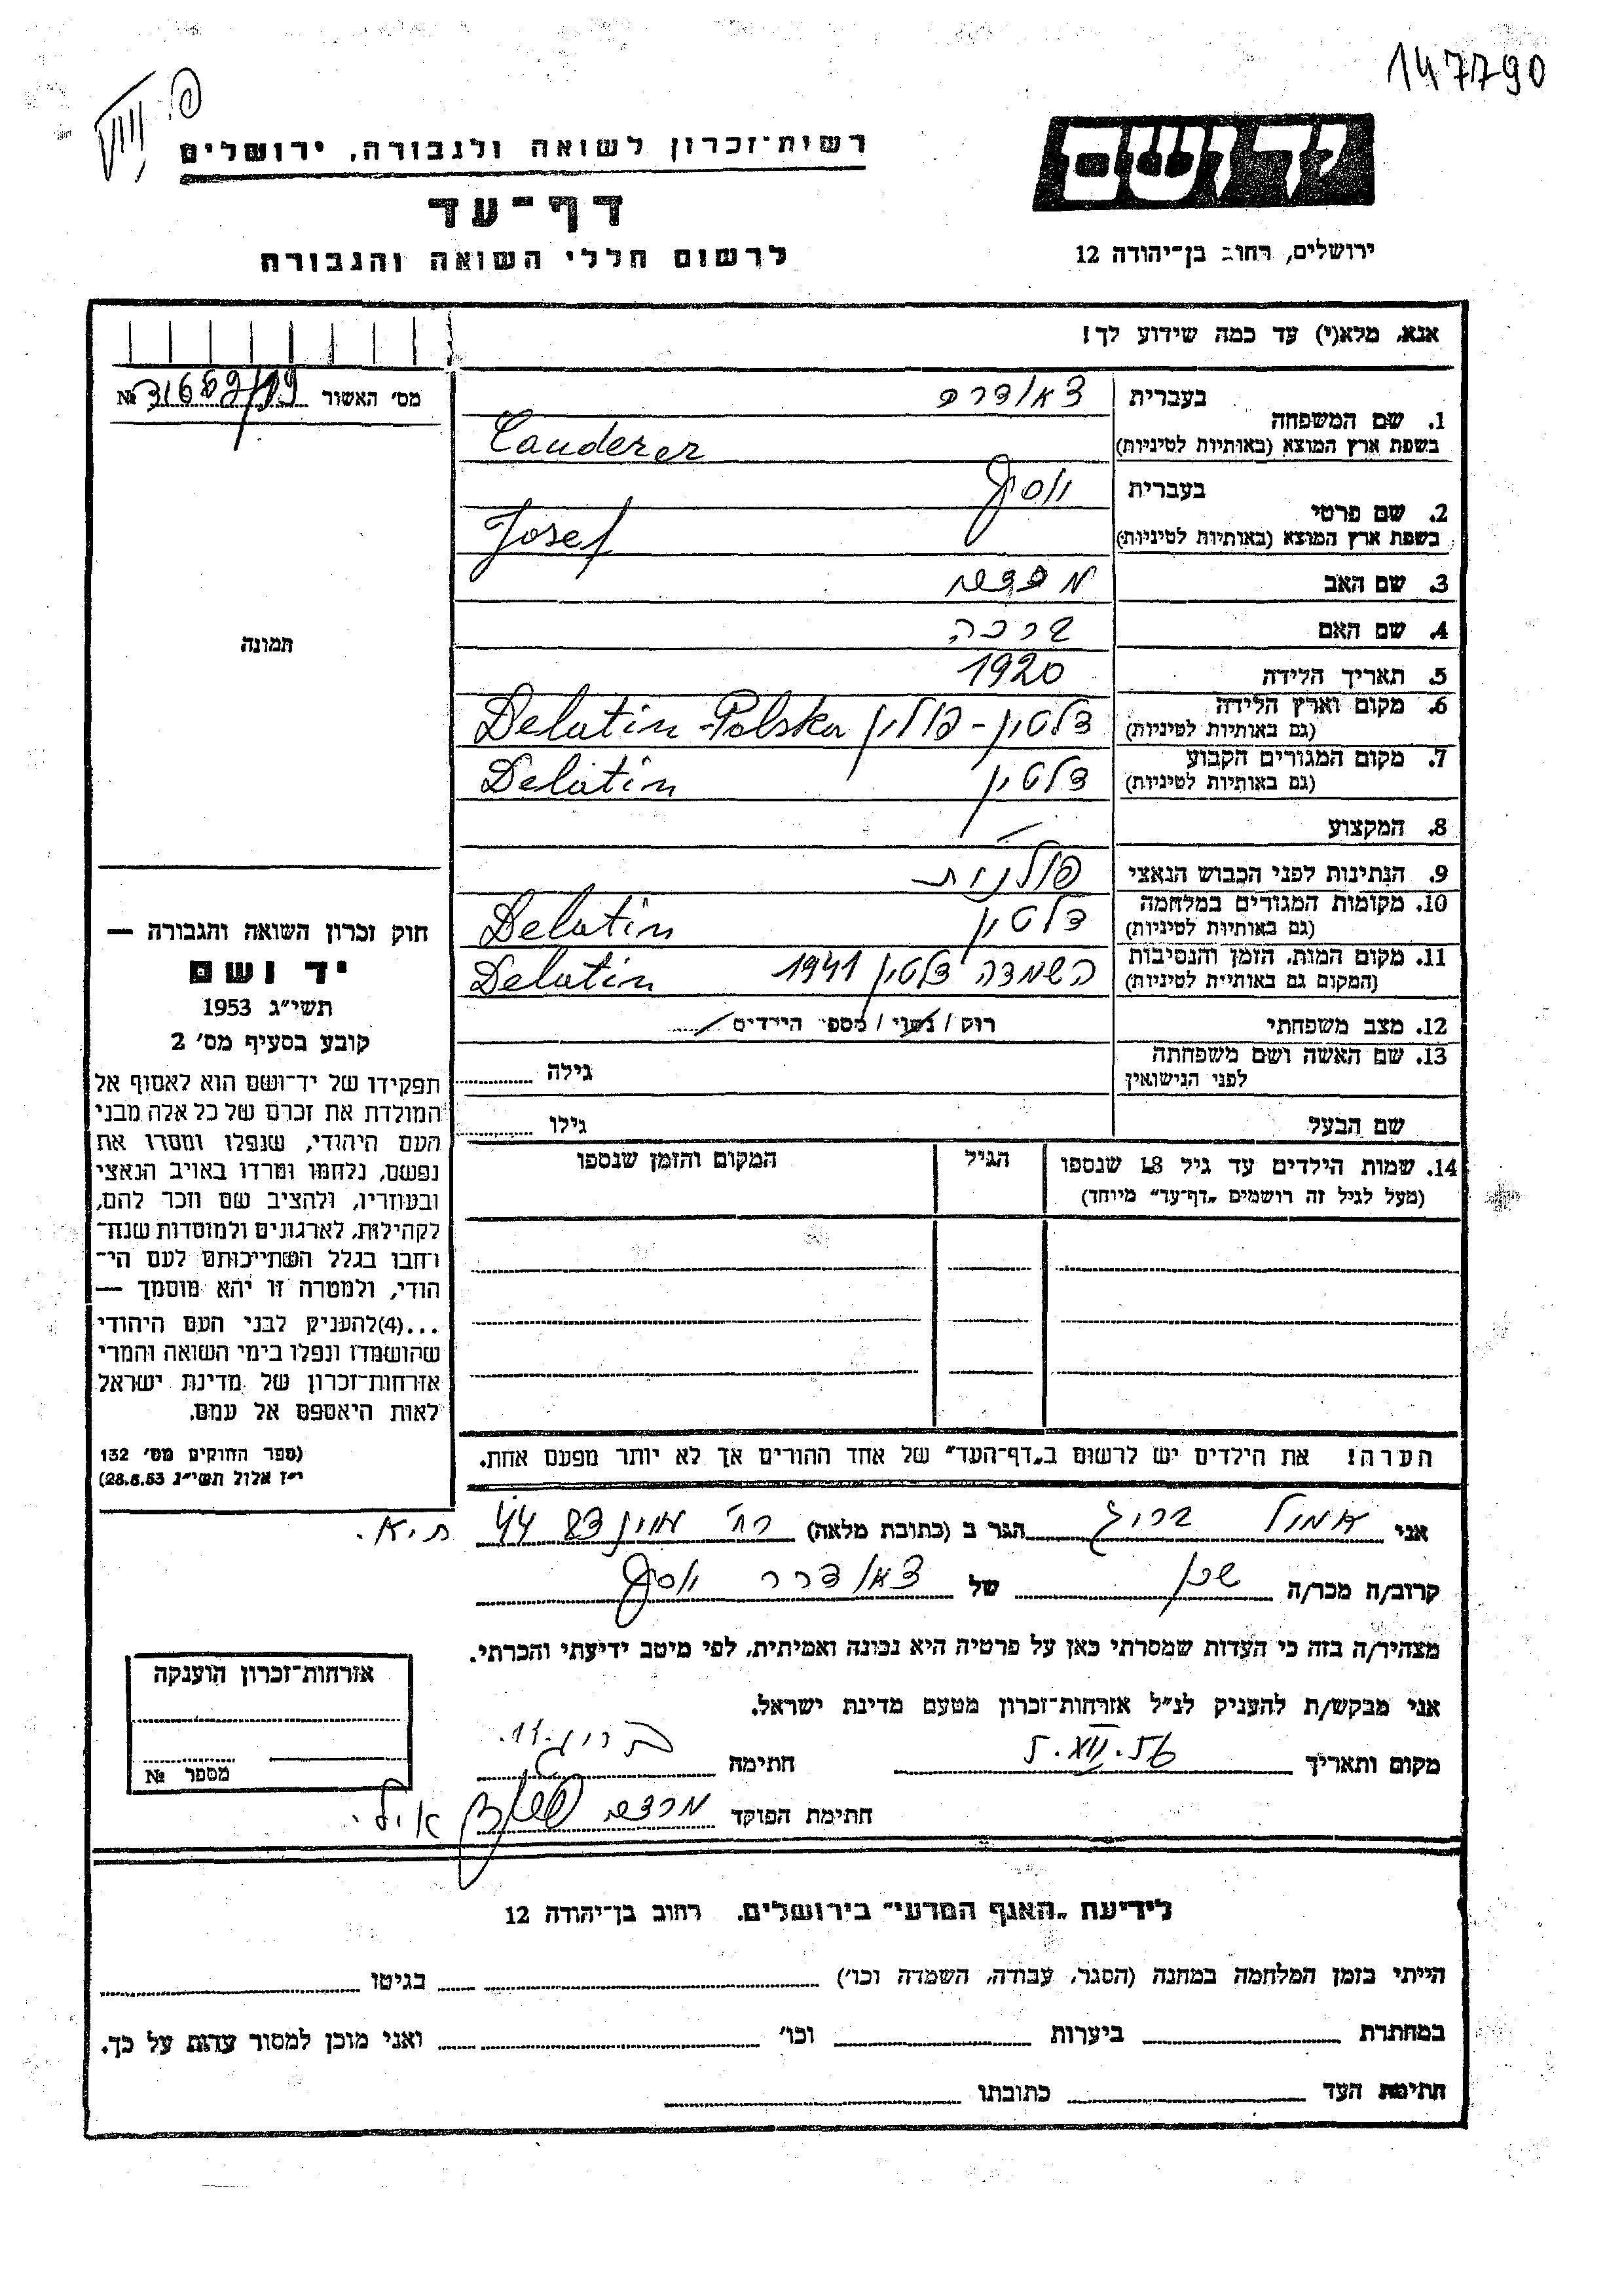 147790
רשות־זכרון לשואה ולגבורה, ירושלים
דף־עד
לרשום חללי השואה והגבורה
יד ושם
ירושלים, רחוב בן־יהודה 12
אנא, מלא(י) עד כמה שידוע לך!
מס׳ האשור №
1. שם המשפחה
בעברית
צאודרר
בשפת ארץ המוצא (באותיות לטיניות)
Cauderer
2. שם פרטי
בעברית
יוסף
בשפת ארץ המוצא (באותיות לטיניות)
Josef
3. שם האב
4. שם האם
5. תאריך הלידה 1920
6. מקום וארץ הלידה
(גם באותיות לטיניות)
דלטין - פולין Delatin - Polska
7. מקום המגורים הקבוע
(גם באותיות לטיניות)
דלטין Delatin
8. המקצוע —
9. הנתינות לפני הכבוש הנאצי
10. מקומות המגורים במלחמה
(גם באותיות לטיניות)
דלטין Delatin
11. מקום המות, הזמן והנסיבות
(המקום גם באותיות לטיניות)
השמדה דלטין 1941 Delatin
12. מצב משפחתי
רוק / נשוי / מספר הילדים
13. שם האשה ושם משפחתה
לפני הנישואין
גילה
שם הבעל
גילו
14. שמות הילדים עד גיל 18 שנספו
(מעל לגיל זה רושמים „דף־עד״ מיוחד)
הגיל
המקום והזמן שנספו
הערה! את הילדים יש לרשום ב„דף־העד״ של אחד ההורים אך לא יותר מפעם אחת.
תמונה
חוק זכרון השואה והגבורה —
יד ושם
תשי״ג 1953
קובע בסעיף מס׳ 2
תפקידו של יד־ושם הוא לאסוף אל
המולדת את זכרם של כל אלה מבני
העם היהודי, שנפלו ומסרו את
נפשם, נלחמו ומרדו באויב הנאצי
ובעוזריו, ולהציב שם וזכר להם,
לקהילות, לארגונים ולמוסדות שנח־
רחבו בגלל השתייכותם לעם הי־
הודי, ולמטרה זו יהא מוסמך —
...(4)להעניק לבני העם היהודי
שהושמדו ונפלו בימי השואה והמרי
אזרחות־זכרון של מדינת ישראל
לאות היאספם אל עמם.
(ספר החוקים מס׳ 132
י״ז אלול תשי״ג 28.8.53)
אני ברוך הגר ב (כתובת מלאה) רח׳ 44 ת״א.
קרוב/ה מכר/ה שכן של צאודרר יוסף
מצהיר/ה בזה כי העדות שמסרתי כאן על פרטיה היא נכונה ואמיתית, לפי מיטב ידיעתי והכרתי.
אני מבקש/ת להעניק לנ״ל אזרחות־זכרון מטעם מדינת ישראל.
מקום ותאריך
חתימה
חתימת הפוקד
אזרחות־זכרון הוענקה
מספר №
לידיעת „האגף המדעי״ בירושלים, רחוב בן־יהודה 12
הייתי בזמן המלחמה במחנה (הסגר, עבודה, השמדה וכו׳) בגיטו
במחתרת ביערות וכו׳ ואני מוכן למסור עדות על כך.
חתימת העד כתובתו